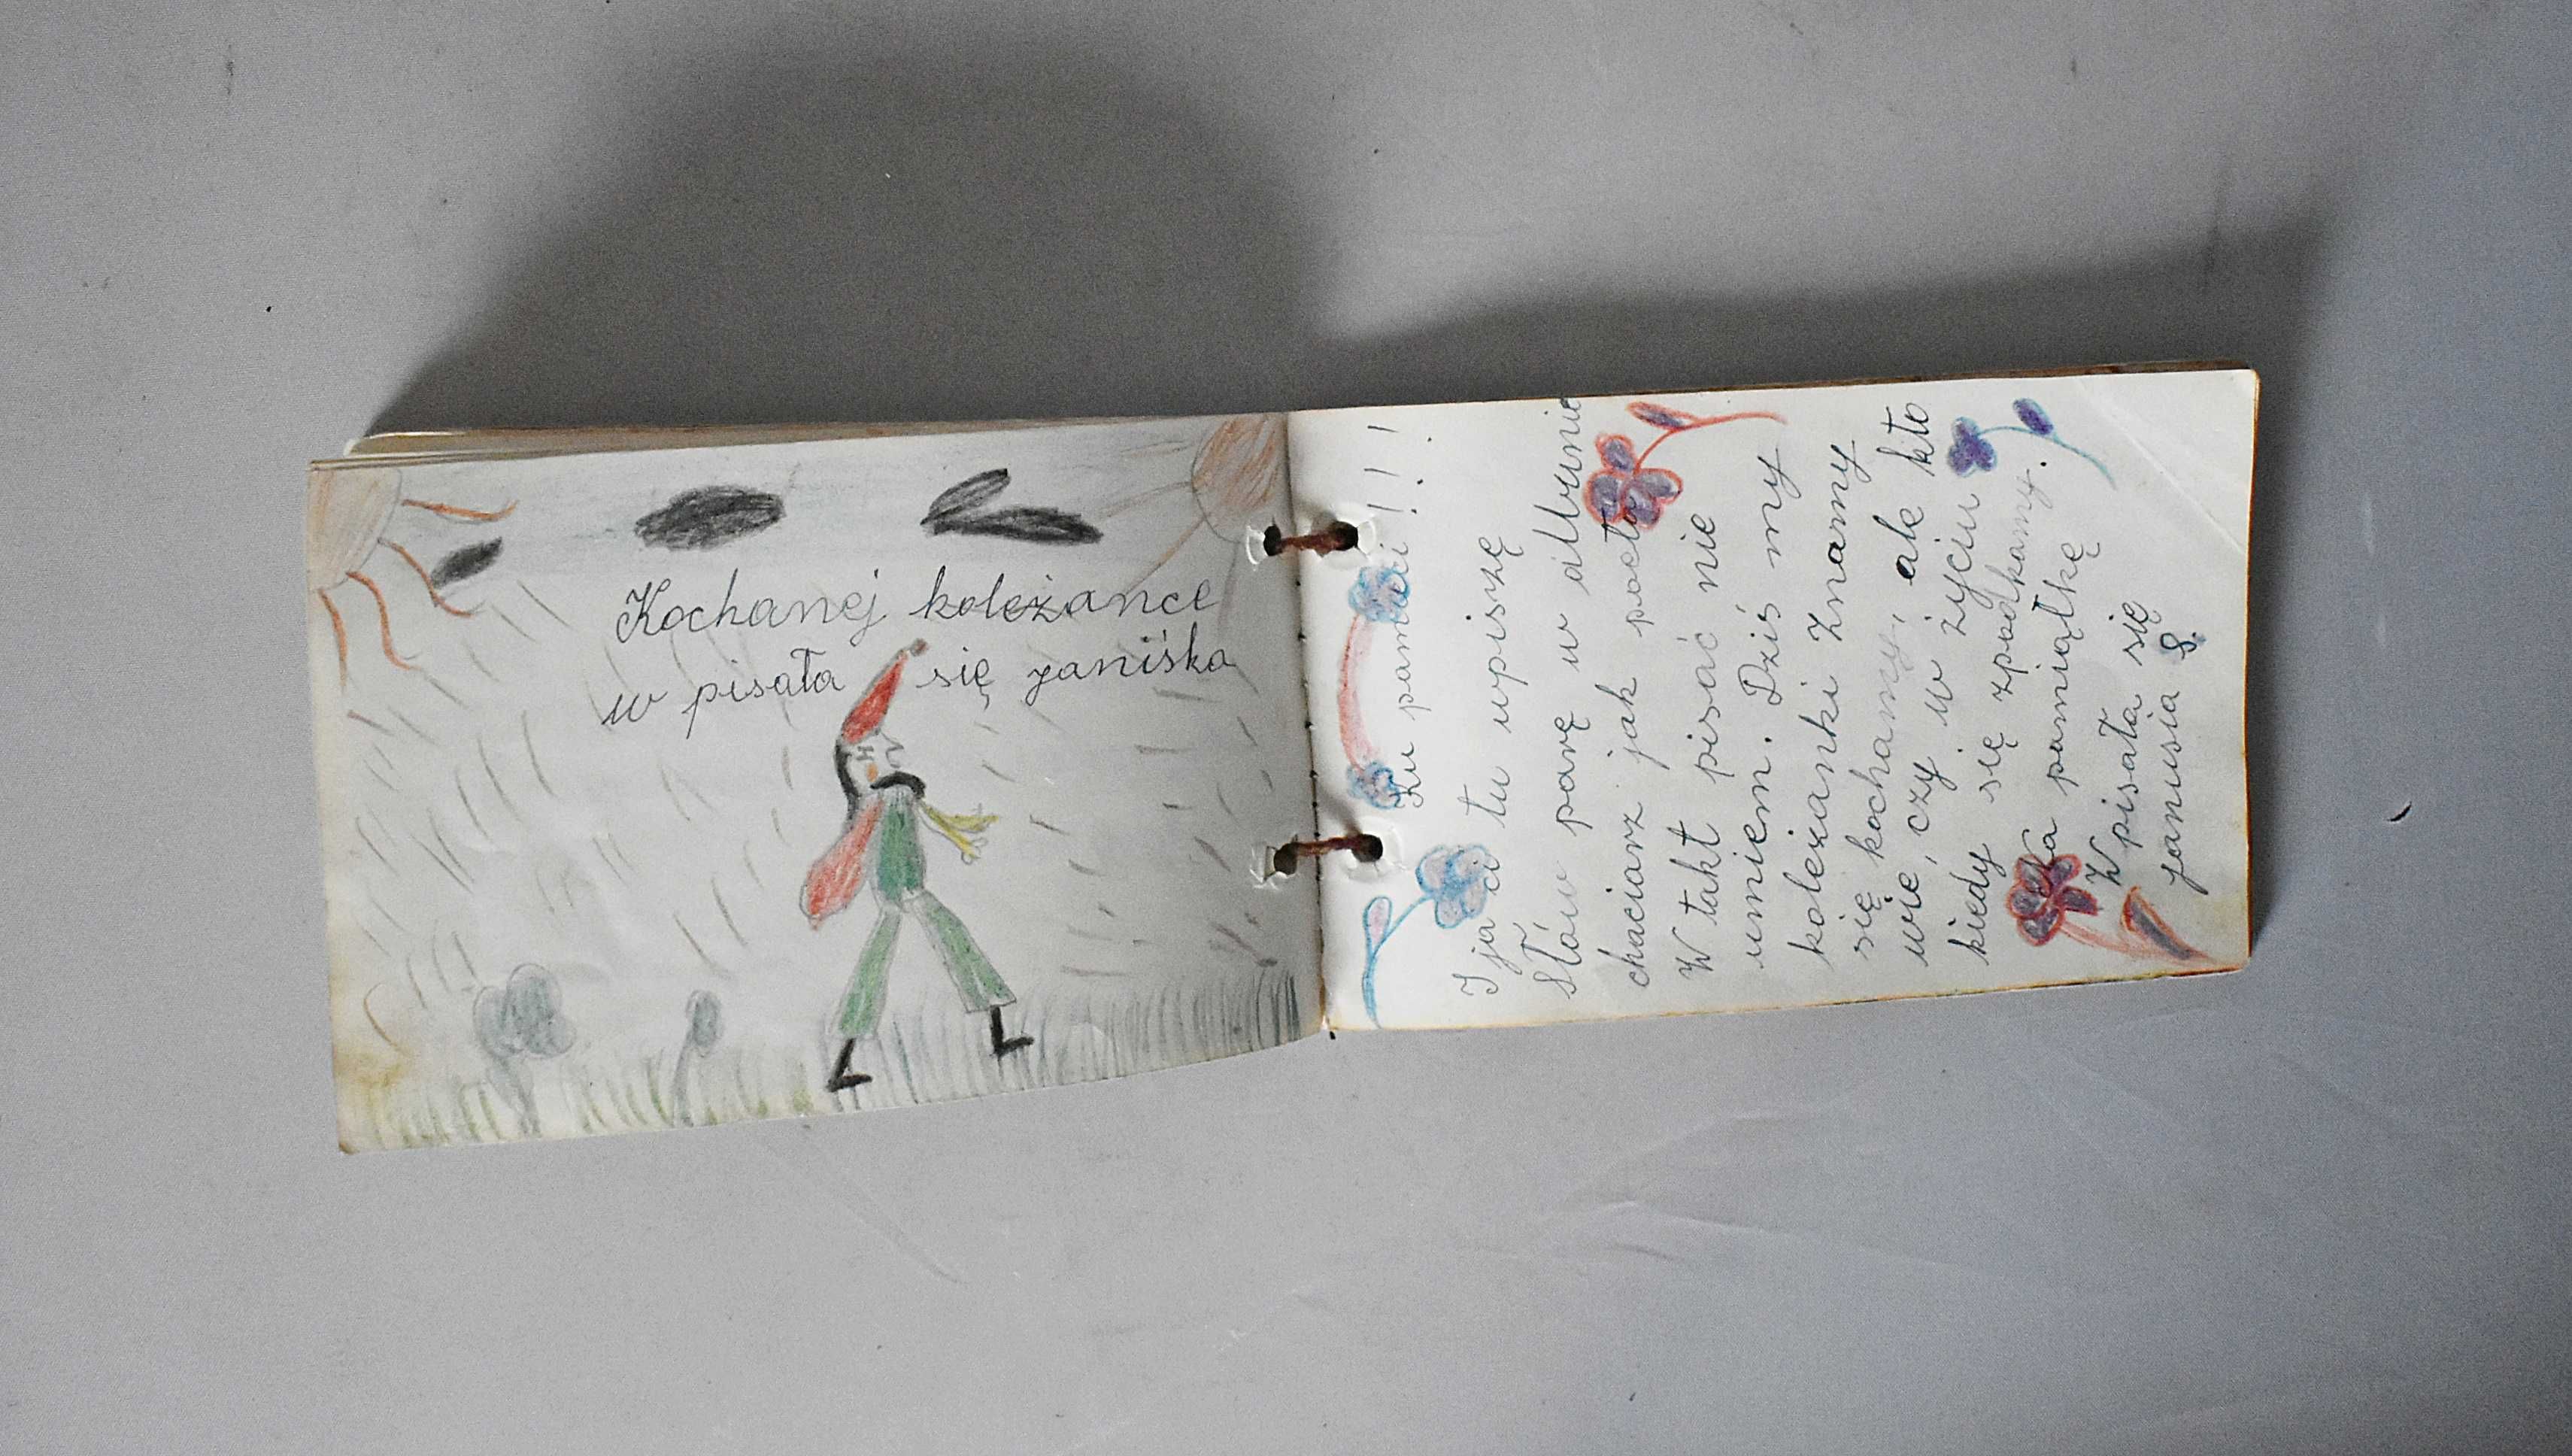 Kochanej koleżance
w pisała się janiśka
Ku pamięci!!!
I ja ci tu wpiszę
słów parę w albumie
chaciarz jak poeta
W takt pisać nie
umiem. Dziś my
koleżanki znamy
się kochamy, ale kto
wie, czy w życiu
kiedy się zpodkamy.
Na pamiątkę
W pisała się
janusia S.